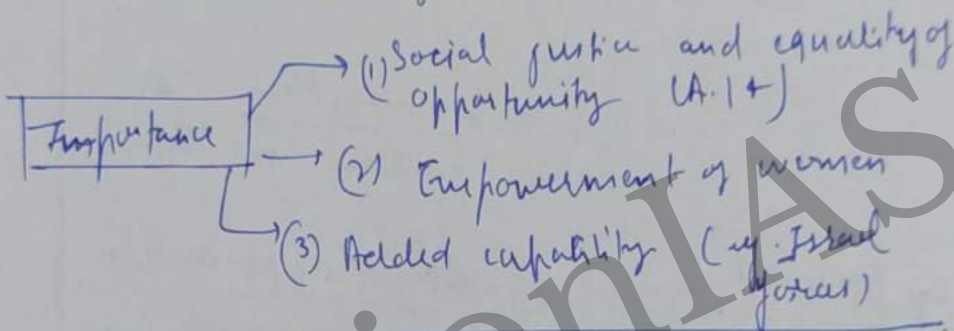 Importance
(1) Social justice and equality of
opportunity (A.14)
(2) Empowerment of women
(3) Added capability (eg. Israel
forces)
ionIAS